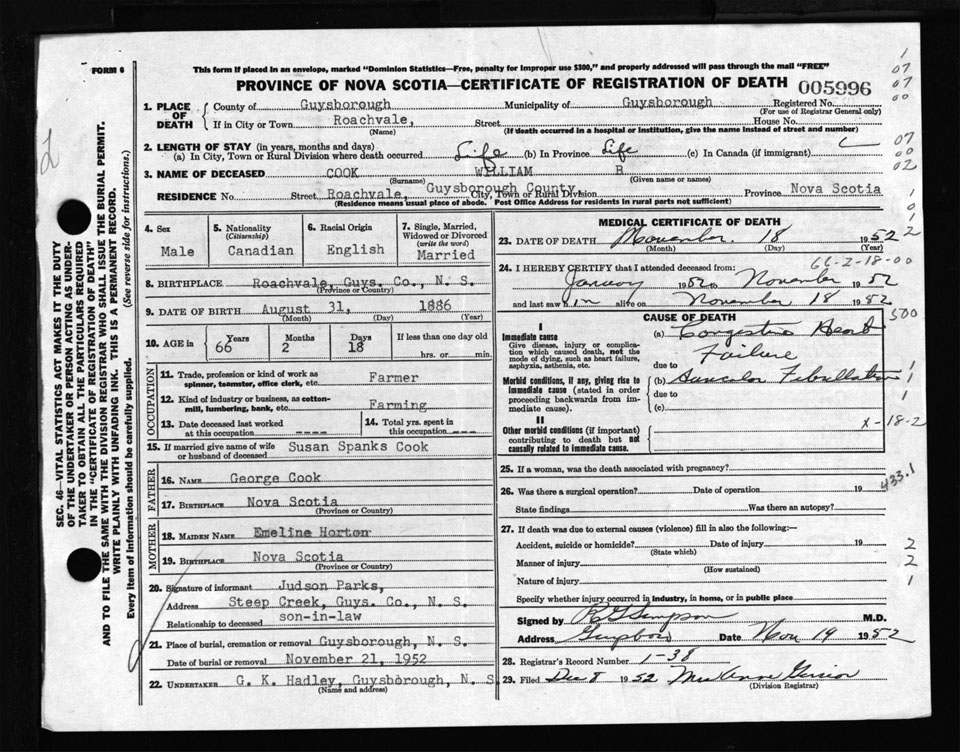 FORM 6
This form if placed in an envelope, marked "Dominion Statistics—Free, penalty for improper use $300," and properly addressed will pass through the mail "FREE"
PROVINCE OF NOVA SCOTIA—CERTIFICATE OF REGISTRATION OF DEATH 005996
1. PLACE OF DEATH
County of Guysborough Municipality of Guysborough Registered No.
(For use of Registrar General only)
If in City or Town Roachvale, Street House No.
(Name) (If death occurred in a hospital or institution, give the name instead of street and number)
2. LENGTH OF STAY (in years, months and days)
(a) In City, Town or Rural Division where death occurred Life (b) In Province Life (c) In Canada (if immigrant)
3. NAME OF DECEASED COOK WILLIAM B
(Surname) (Given name or names)
RESIDENCE No. Street Roachvale, Guysborough County, City, Town or Rural Division Province Nova Scotia
(Residence means usual place of abode. Post Office Address for residents in rural parts not sufficient)
4. Sex
Male
5. Nationality
(Citizenship)
Canadian
6. Racial Origin
English
7. Single, Married, Widowed or Divorced
(write the word)
Married
8. BIRTHPLACE Roachvale, Guys. Co., N. S.
(Province or Country)
9. DATE OF BIRTH August 31, 1886
(Month) (Day) (Year)
10. AGE in Years Months Days If less than one day old
66 2 18 hrs. or min.
OCCUPATION
11. Trade, profession or kind of work as spinner, teamster, office clerk, etc. Farmer
12. Kind of industry or business, as cotton-mill, lumbering, bank, etc. Farming
13. Date deceased last worked at this occupation ----
14. Total yrs. spent in this occupation ----
15. If married give name of wife or husband of deceased Susan Spanks Cook
FATHER
16. NAME George Cook
17. BIRTHPLACE Nova Scotia
(Province or Country)
MOTHER
18. MAIDEN NAME Emeline Horton
19. BIRTHPLACE Nova Scotia
(Province or Country)
20. Signature of informant Judson Parks,
Address Steep Creek, Guys. Co., N. S.
Relationship to deceased son-in-law
21. Place of burial, cremation or removal Guysborough, N. S.
Date of burial or removal November 21, 1952
22. UNDERTAKER G. K. Hadley, Guysborough, N. S.
(Name and address)
MEDICAL CERTIFICATE OF DEATH
23. DATE OF DEATH November 18 1952
(Month) (Day) (Year)
66-2-18-00
24. I HEREBY CERTIFY that I attended deceased from:
January 1952 to November 1952
and last saw him alive on November 18 1952
CAUSE OF DEATH
I
Immediate cause
Give disease, injury or complication which caused death, not the mode of dying, such as heart failure, asphyxia, asthenia, etc.
(a) Congestive Heart
Failure
due to
Morbid conditions, if any, giving rise to immediate cause (stated in order proceeding backwards from immediate cause).
(b) Auricular Fibrillation
due to
(c)
II
Other morbid conditions (if important) contributing to death but not causally related to immediate cause.
X-18-2
25. If a woman, was the death associated with pregnancy?
26. Was there a surgical operation? Date of operation 19
State findings Was there an autopsy?
433.1
27. If death was due to external causes (violence) fill in also the following:—
Accident, suicide or homicide? Date of injury 19
(State which)
Manner of injury
(How sustained)
Nature of injury
Specify whether injury occurred in industry, in home, or in public place
Signed by R G Simpson M.D.
Address Date Nov 19 1952
28. Registrar's Record Number 1-38
29. Filed Dec 8 1952 Mrs Anne
(Division Registrar)
SEC. 46—VITAL STATISTICS ACT MAKES IT THE DUTY
OF THE UNDERTAKER OR PERSON ACTING AS UNDER-
TAKER TO OBTAIN ALL THE PARTICULARS REQUIRED
IN THE "CERTIFICATE OF REGISTRATION OF DEATH"
AND TO FILE THE SAME WITH THE DIVISION REGISTRAR WHO SHALL ISSUE THE BURIAL PERMIT.
WRITE PLAINLY WITH UNFADING INK. THIS IS A PERMANENT RECORD.
Every item of information should be carefully supplied. (See reverse side for instructions.)
1
07
07
00
07
00
02
1
0
2
500
1
1
1
2
2
1